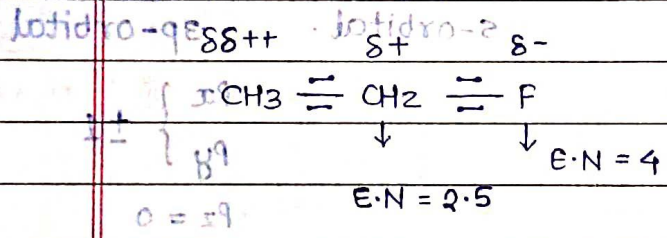 δδ++ δ+ δ-
CH3 — CH2 — F
↓ ↓
E.N = 4
E.N = 2.5